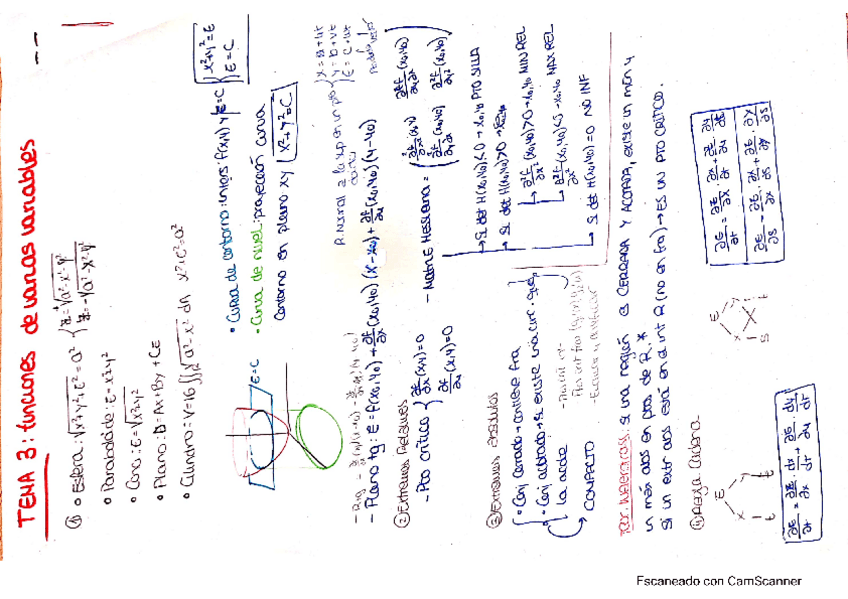 TEMA 3: funciones de varias variables
① • Esfera: √x²+y²+z²=a² { z=√a²-x²-y²
z=-√a²-x²-y²
• Paraboloide: z=x²+y²
• Cono: z=√x²+y²
• Plano: D=Ax+By+Cz
• Cilindro: V=16∫∫√a²-x² dA x²+z²=a²
z=C
• Curva de contorno: inters f(x,y) y z=C { x²+y²=z
z=C
• Curva de nivel: proyección curva
contorno en plano xy x²+y²=C
- Plano tg: z=f(x0,y0)+∂f/∂x(x0,y0)(x-x0)+∂f/∂y(x0,y0)(y-y0)
② Extremos Relativos
- Pto crítico { ∂f/∂x(x,y)=0
∂f/∂y(x,y)=0
- Matriz Hessiana = ( ∂²f/∂x²(x0,y0) ∂²f/∂y∂x(x0,y0)
∂²f/∂x∂y(x0,y0) ∂²f/∂y²(x0,y0) )
→ Si det H(x0,y0)<0 → x0,y0 PTO SILLA
→ Si det H(x0,y0)>0 →
↳ ∂²f/∂x²(x0,y0)>0 → x0,y0 MIN REL
↳ ∂²f/∂x²(x0,y0)<0 → x0,y0 MAX REL
→ Si det H(x0,y0)=0 NO INF
③ Extremos absolutos
• Conj cerrado → contiene fra
• Conj acotado → si existe una circ. que
la acote
COMPACTO
Teor. Weierstrass: si una región es CERRADA Y ACOTADA, existe un mín y
un máx abs en ptos de R. *
Si un extr abs está en el int R (no en fra) → ES UN PTO CRÍTICO.
④ Regla Cadena
z
x y
t t
∂z/∂t = ∂z/∂x · dx/dt + ∂z/∂y · dy/dt
z
x y
s t
∂z/∂t = ∂z/∂x · ∂x/∂t + ∂z/∂y · ∂y/∂t
∂z/∂s = ∂z/∂x · ∂x/∂s + ∂z/∂y · ∂y/∂s
Escaneado con CamScanner